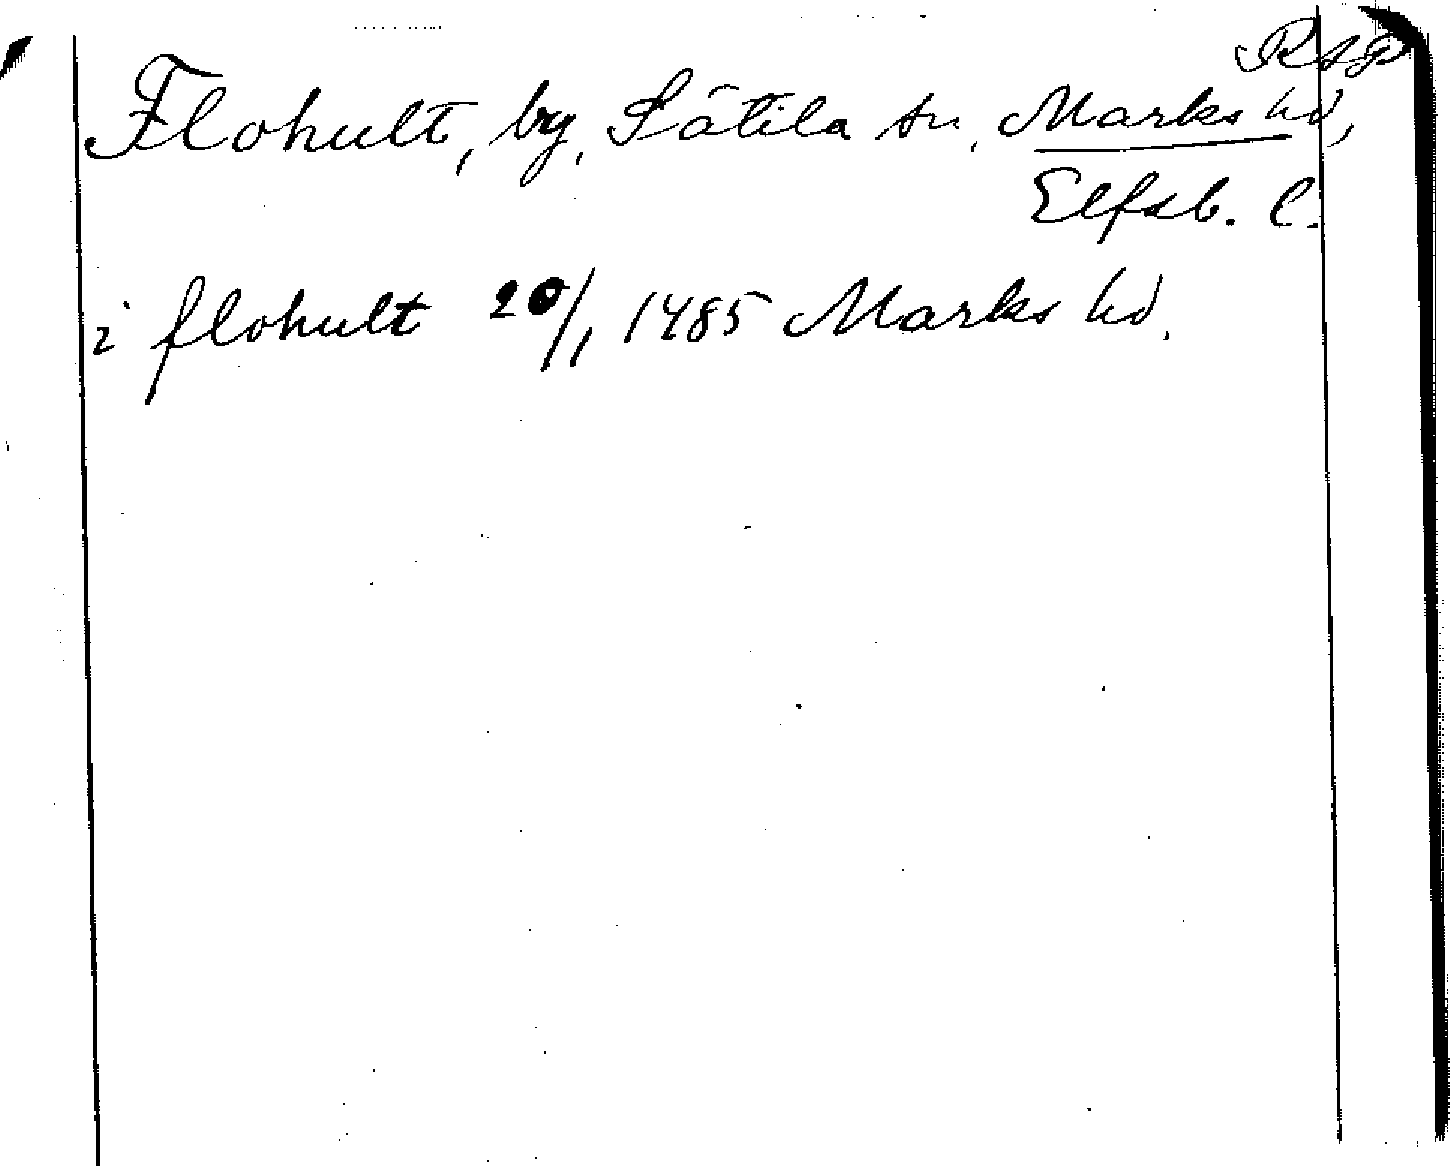 RAP
Flohult, by, Sätila sn, Marks hd,
Elfsb. l.
i flohult 20/1 1485 Marks hd.